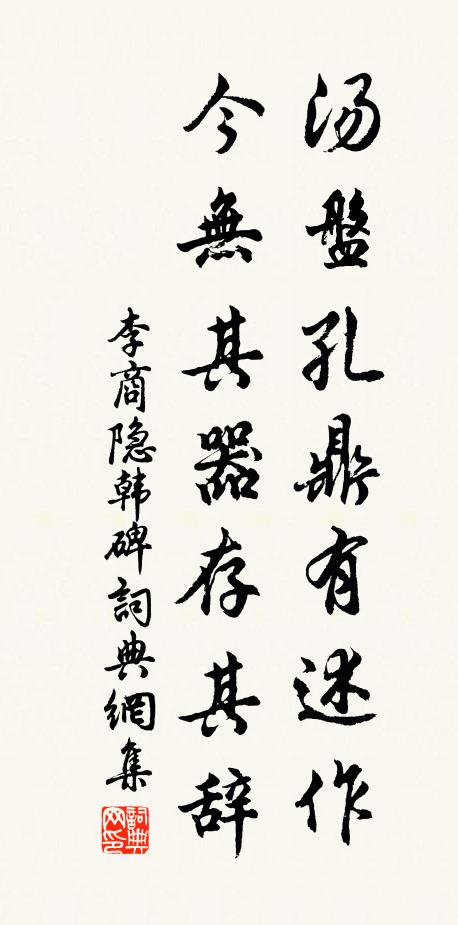 汤盤孔鼎有述作
今無其器存其辞
李商隐韩碑詞典網集
詞典网印